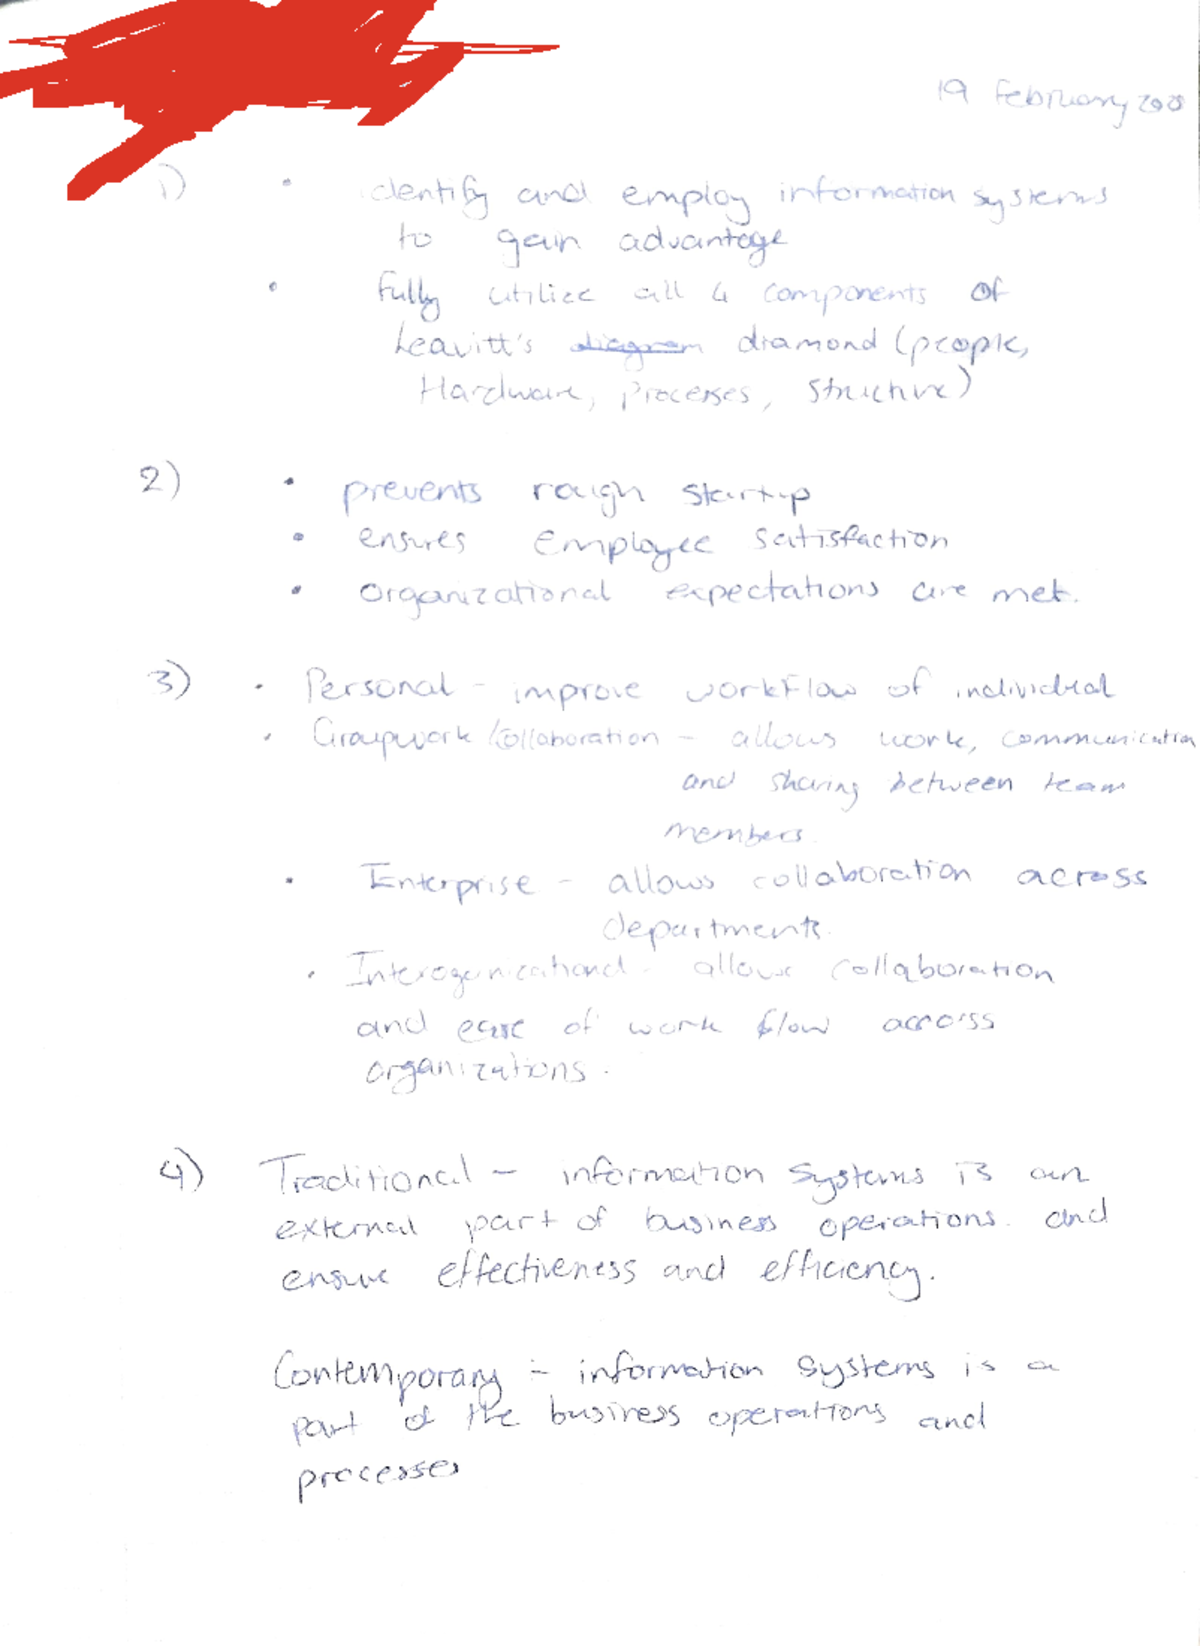 19 February
1) • identify and employ information systems
to gain advantage
• fully utilize all 4 components of
Leavitt's diagram diamond (people,
Hardware, processes, structure)
2) • prevents rough startup
• ensures employee satisfaction
• organizational expectations are met.
3) • Personal - improve workflow of individual
• Groupwork/collaboration - allows work, communication
and sharing between team
members.
• Enterprise - allows collaboration across
departments.
• Interoganizational - allows collaboration
and ease of work flow accross
organizations.
4) Traditional - information systems is an
external part of business operations. and
ensure effectiveness and efficiency.
Contemporary - information systems is a
part of the business operations and
processes